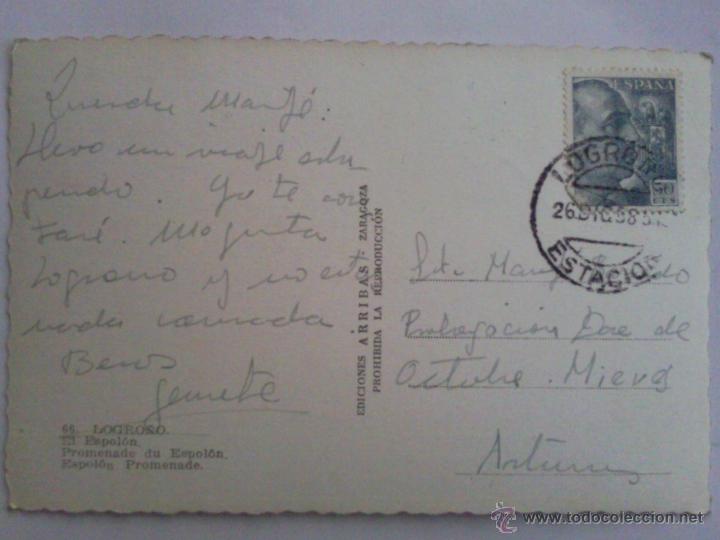 Querida Marifé:
Llevo un viaje estu
pendo. Ya te con
taré. Me gusta
Logroño y no estoy
nada cansada
Besos
66. LOGROÑO.
El Espolón.
Promenade du Espolón.
Espolón Promenade.
EDICIONES ARRIBAS - ZARAGOZA
PROHIBIDA LA REPRODUCCIÓN
ESPAÑA
50
CTS
LOGROÑO
26.DIC.58
ESTACION
Srta.
Prolongación Doce de
Octubre. Mieres
Asturias
© www.todocoleccion.net